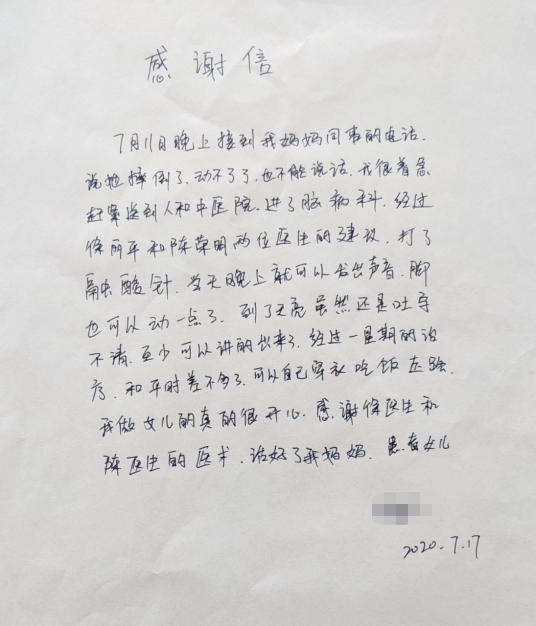 感谢信
7月11日晚上接到我妈妈同事的电话.
说她摔倒了.动不了了,也不能说话.我很着急
赶紧送到人和中医院.进了脑病科.经过
徐丽平和陈荣明两位医生的建议.打了
融酸针.当天晚上就可以发出声音.脚
也可以动一点了.到了天亮虽然还是吐字
不清.至少可以讲的出来了.经过一星期的治
疗.和平时差不多了.可以自己穿衣吃饭走路.
我做女儿的真的很开心.感谢徐医生和
陈医生的医术.治好了我妈妈.患者女儿
2020.7.17